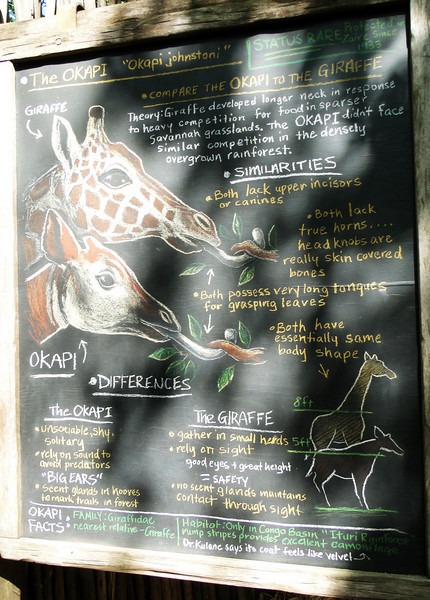 • The OKAPI "Okapi johnstoni"
STATUS RARE Protected in
Zaire Since
1933
• COMPARE THE OKAPI TO THE GIRAFFE
GIRAFFE
Theory: Giraffe developed longer neck in response
to heavy competition for food in sparser
Savannah grasslands. The OKAPI didn't face
similar competition in the densely
overgrown rainforest.
• SIMILARITIES
• Both lack upper incisors
or canines
• Both lack
true horns....
head knobs are
really skin covered
bones
• Both possess very long tongues
for grasping leaves
• Both have
essentially same
body shape
OKAPI
• DIFFERENCES
8ft
5ft
The OKAPI
• unsociable, shy,
solitary
• rely on sound to
avoid predators
"BIG EARS"
• Scent glands in hooves
to mark trails in forest
The GIRAFFE
• gather in small herds
• rely on sight
good eyes + great height
= SAFETY
• no scent glands maintains
contact through sight
OKAPI FACTS
• FAMILY: Giraffidae
• nearest relative - Giraffe
Habitat: Only in Congo Basin "Ituri Rainforest"
rump stripes provides excellent camouflage
Dr. Kulane says its coat feels like velvet